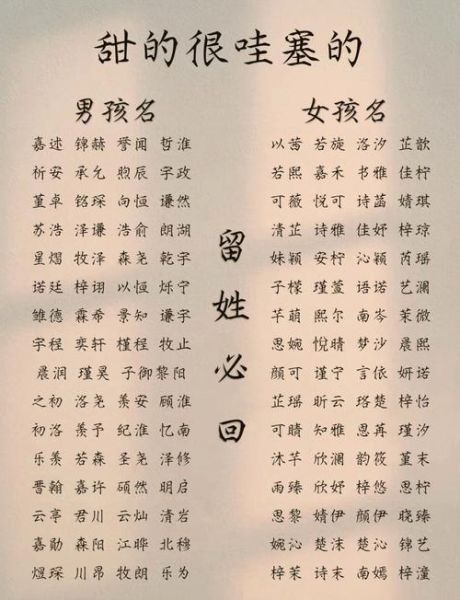 甜的很哇塞的
男孩名
嘉述 锦赫 誉闻 哲淮
祈安 承允 煦辰 宇政
堇卓 铭琛 向恒 谦然
苏浩 泽谦 浩俞 朗湖
星熠 牧泽 森尧 乾宇
诺廷 梓诩 以恒 烁宁
雏德 霖希 景知 谦宇
宇程 奕轩 槿程 牧止
晨润 瑾昊 子御黎阳
之初 洛尧 羡安 顾淮
初洛 羡予 纪淮 忆南
乐羡 若森 圣尧 泽修
晋翰 嘉许 硕然 明启
云亭 君川 云灿 清岩
嘉勋 森阳 江晔 北穆
煜琛 川昂 牧朗 乐为
留姓必回
女孩名
以茜 若旋 洛汐 芷歆
若熙 嘉禾 书雅 佳柠
可薇 悦可 诗菡 婧琪
清芷 诗雅 佳妤 梓琼
姝颖 安柠 沁颖 芮瑶
子檬 瑾萱 语诺 艺澜
芊萌 熙尔 南岑 茉微
思婉 悦晴 梦沙 晨熙
颜可 谨宁 言依 妍诺
芷瑶 昕云 珞楚 梓怡
可晴 知雅 思苒 瑾汐
沐芊 欣澜 韵筱 堇末
雨臻 欣妤 梓悠 思柠
思黎 婧伊 颜伊 晓臻
婉沁 楚沫 楚沁 锦艺
梓茉 诗末 南嫣 梓潼